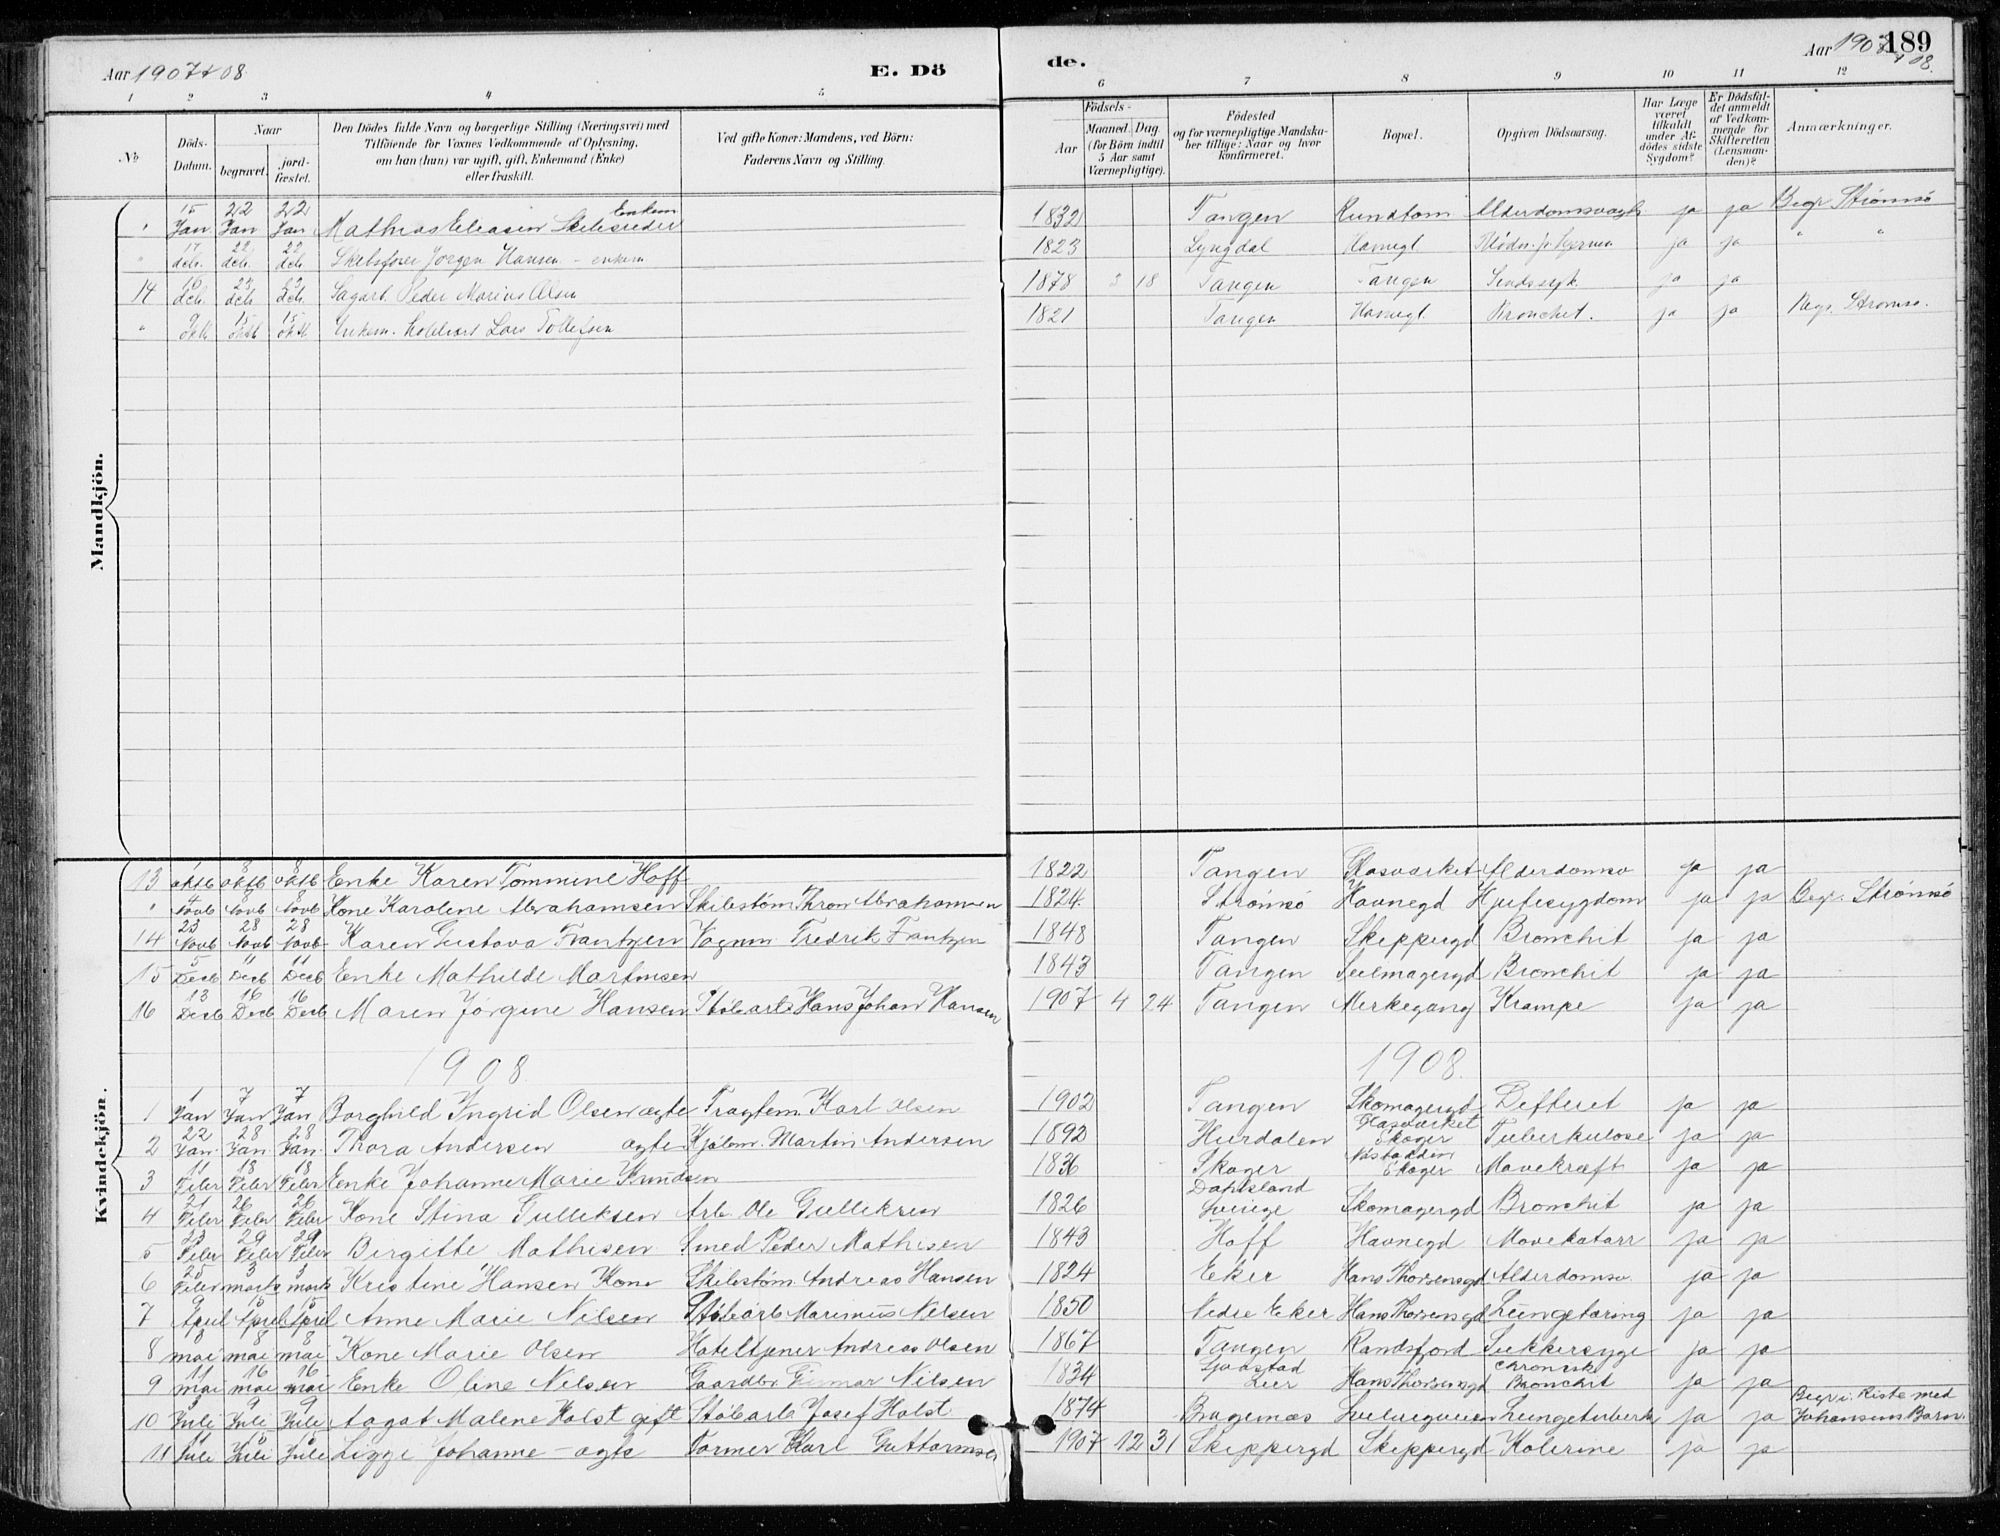 Aar 1907 & 08
E. Dö
de.
Aar 1907 & 08.
189
1 2 3 4 5 6 7 8 9 10 11 12
No
Döds-Datum.
Naar
begravet.
jord-fæstet.
Den Dödes fulde Navn og borgerlige Stilling (Næringsvei) med
Tilföiende for Voxnes Vedkommende af Oplysning,
om han (hun) var ugift, gift, Enkemand (Enke)
eller fraskilt.
Ved gifte Koner: Mandens, ved Börn:
Faderens Navn og Stilling.
Födsels-
Aar
Maaned. Dag.
(for Börn indtil
5 Aar samt
Værnepligtige).
Födested
og for værnepligtige Mandska-
ber tillige: Naar og hvor
konfirmeret.
Bopæl.
Opgiven Dödsaarsag.
Har Læge
været
tilkaldt
under Af-
dödes sidste
Sygdom?
Er Dödsfal-
det anmeldt
af Vedkom-
mende for
Skifteretten
(Lensman-
den)?
Anmærkninger.
Mandkjön.
" 15 Jan 22 Jan 22 Jan Mathias Eliasen Skibsreder Enkem 1832 Tangen Rundtom Alderdomsvagh ja ja Begr Strømsø
" 17 dch. 22 dch 22 dch Skibsfører Jørgen Hansen - enkem 1823 Lyngdal Havnegt ja ja " "
14 dch. 23 dch 23 dch. Sagarb. Peder Marius Olsen 1878 3 18 Tangen Tangen Sindssyk. ja ja
" 9 oktb 15 oktb 15 oktb Enkem. Lars Tollefsen 1821 Tangen Havnegt Bronchit. ja ja Begr. Strømsø.
Kvindekjön.
13 oktb 8 oktb 8 oktb Enke Karen Tommine Hoff 1822 Tangen Glasværket Alderdomsv ja ja
" Novb 8 Novb 8 Novb Kone Karoline Abrahamsen Skibstøm Thron Abrahamsen 1824. Strømsø Havnegd Hjertesygdom ja ja Begr. Strømsø
14 23 Novb 28 Novb 28 Novb Karen Gustava Frantzen Vognm Fredrik Frantzen 1848 Tangen Skippergd Bronchit ja ja
15 5 Decb 11 Decb 11 Decb Enke Mathilde Martinsen 1843 Tangen Seilmagergd Bronchit ja ja
16 13 Decb 16 Decb 16 Decb Maren Jørgine Hansen Støbearb Hans Johan Hansen 1907 4 24 Tangen Merkegang Krampe ja ja
1908 1908.
1 1 Jan 7 Jan 7 Jan Borghild Ingrid Olsen ægte Fragtem Karl Olsen 1902 Tangen Skomagergd Difterit ja ja
2 22 Jan. 28 Jan 28 Jan. Thora Andersen ægte Kjølem. Martin Andersen 1892 Hurdalen Glasværket Skoger Tuberkulose ja ja
3 11 Febr 18 Febr 18 Febr Enke Johanne Marie Knudsen 1836 Skoger Skoger Mavekræft ja ja
4 21 Febr 26 Febr 26 Febr Kone Stina Gulliksen Arb. Ole Gulliksen 1826 Dahlsland Sverige Skomagergd Bronchit ja ja
5 23 Febr 29 Febr 29 Febr Birgitte Mathisen Smed Peder Mathisen 1843 Hoff Havnegd Mavekatarr ja ja
6 25 Febr 3 marts 3 marts Kristine Hansen Kone Skibstøm. Andreas Hansen 1824 Eker Hans Thorsensgd Alderdomsv. ja ja
7 9 April 15 April 15 April Anne Marie Nilsen Støbearb Marinius Nilsen 1850 Nedre Eker Hans Thorsensgd Lungetæring ja ja
8 3 mai 8 mai 8 mai Kone Marie Olsen Hoteltjener Andreas Olsen 1867 Tangen Randsfjord Sukkersyge ja ja
9 11 mai 16 mai 16 mai Enke Oline Nilsen Gaardbr Nilsen 1834 Lier Hans Thorsensgd chronisk Bronchit ja ja
10 Juli 9 Juli 9 Juli Aagot Malene Holst gift Støbearb Josef Holst 1874 Bragernæs Svelvigveien Lungetuberk ja ja Begr i Kiste med Johansens Barn.
11 11 Juli 15 Juli 15 Juli Johanne - ægte Former Karl Guttormsen 1907 12 31 Skippergd Skippergd Kolerine ja ja